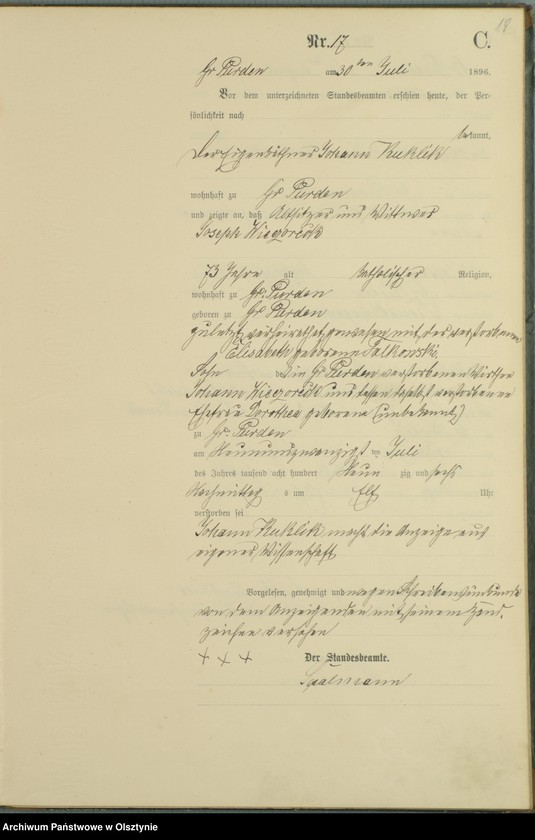 19
Nr. 17 C.
Gr Purden am 30ten Juli 1896.
Vor dem unterzeichneten Standesbeamten erschien heute, der Per-
sönlichkeit nach
bekannt,
der Eigenkäthner Johann Kuklik
wohnhaft zu Gr Purden
und zeigte an, daß Altsitzer und Wittwer
Joseph Wieczorek
73 Jahre alt katholischer Religion,
wohnhaft zu Gr. Purden
geboren zu Gr. Purden
zuletzt verheirathet gewesen mit der verstorbenen
Elisabeth geborene Falkowski,
Sohn des in Gr Purden verstorbenen Wirthen
Johann Wieczorek und dessen daselbst verstorbenen
Ehefrau Dorothea geborene (unbekannt)
zu Gr. Purden
am Neunundzwanzigst en Juli
des Jahres tausend acht hundert Neun zig und sechs
Nachmittag s um Elf Uhr
verstorben sei
Johann Kuklik macht die Anzeige aus
eigener Wissenschaft
Vorgelesen, genehmigt und wegen Schreibensunkunde
von dem Anzeigenden mit seinem Hand-
zeichen versehen
+ + + Der Standesbeamte.
Saalmann
Archiwum Państwowe w Olsztynie